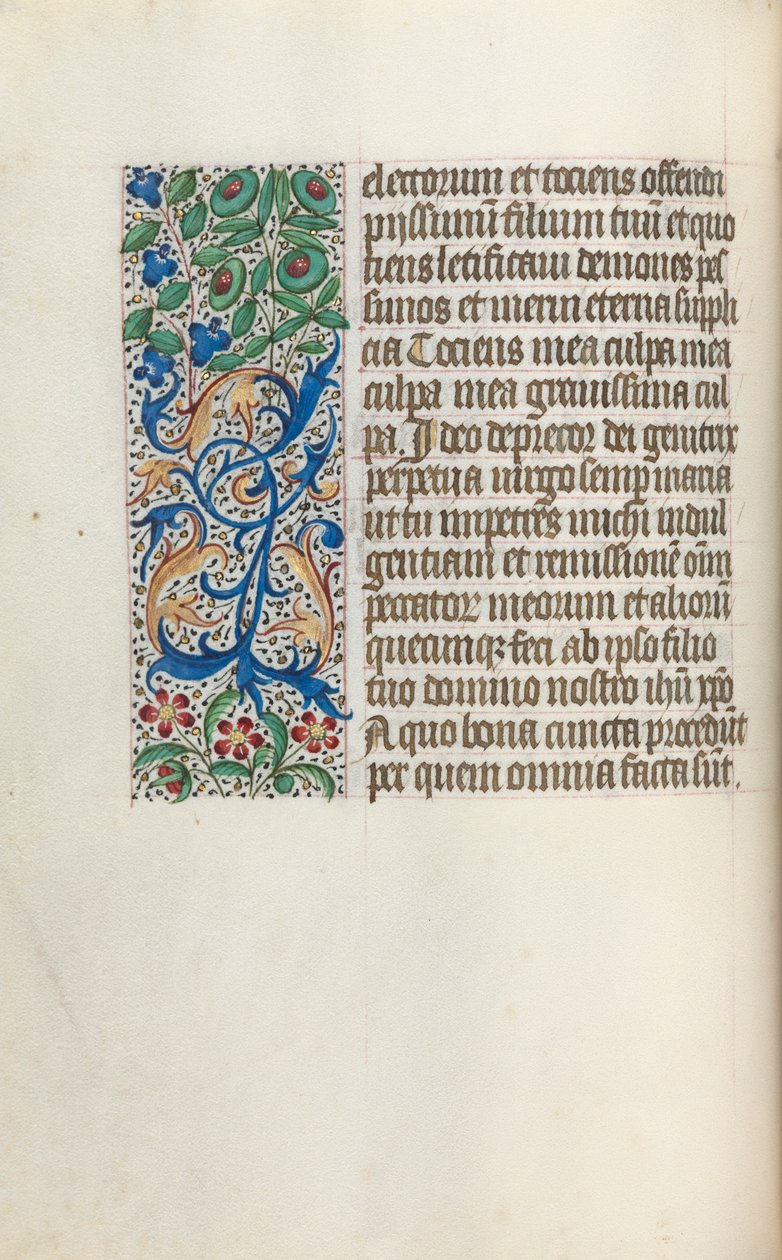 electorum et tociens offendi
pijssimū filium tuū et quo
tiens letificaui demones pes
simos et merui eterna suppli
cia Tociens mea culpa mea
culpa mea grauissima cul
pa. Ideo deprecor dei genitrix
perpetua uirgo semp maria
ut tu impetres michi indul
gentiam et remissionē oīm
peccatoꝝ meorum et alioꝝū
quecunqꝫ feci ab ipso filio
tuo domino nostro ihū xp̄o
A quo bona cuncta procedūt
per quem omnia facta sūt.